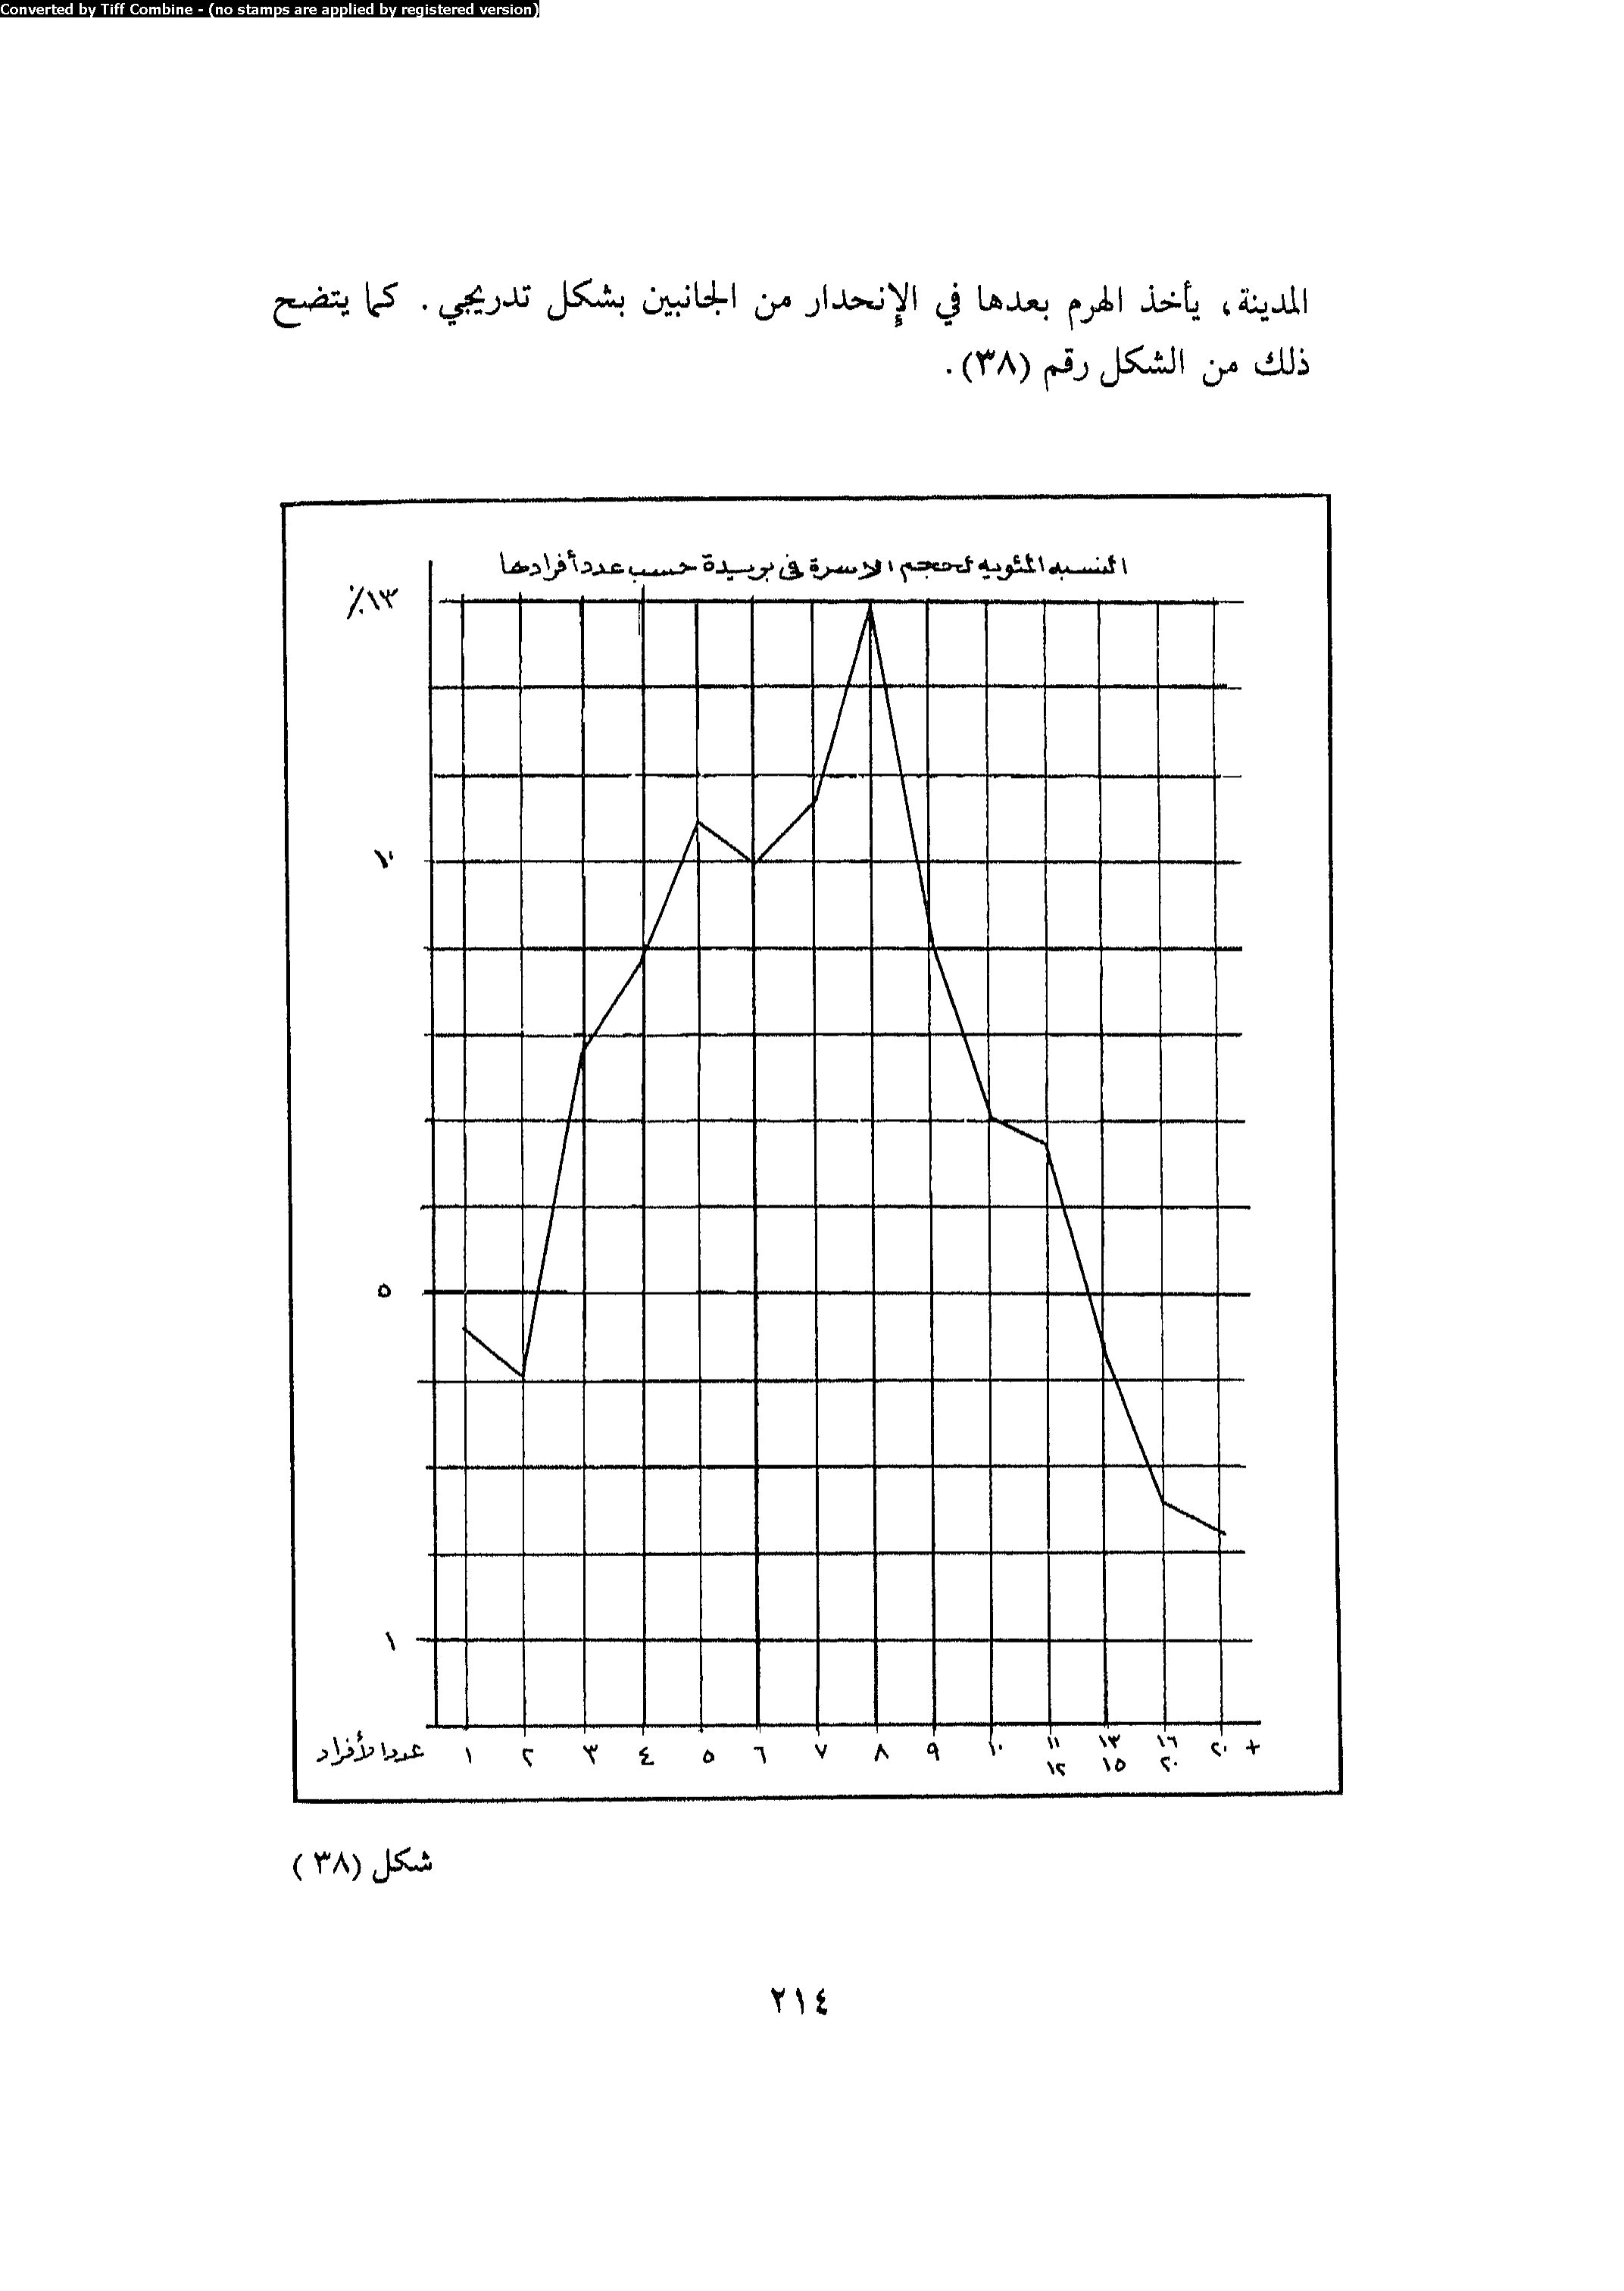 Converted by Tiff Combine - (no stamps are applied by registered version)
المدينة، يأخذ الهرم بعدها في الإنحدار من الجانبين بشكل تدريجي. كما يتضح
ذلك من الشكل رقم (٣٨).
النسبه المئويه لحجم الاسرة في بريدة حسب عدد أفرادها
١٣٪
١٠
٥
١
عدد الأفراد ١ ٢ ٣ ٤ ٥ ٦ ٧ ٨ ٩ ١٠ ١١ ١٣ ١٦ ٢٠ +
١٢ ١٥ ٢٠
شكل (٣٨)
٢١٤